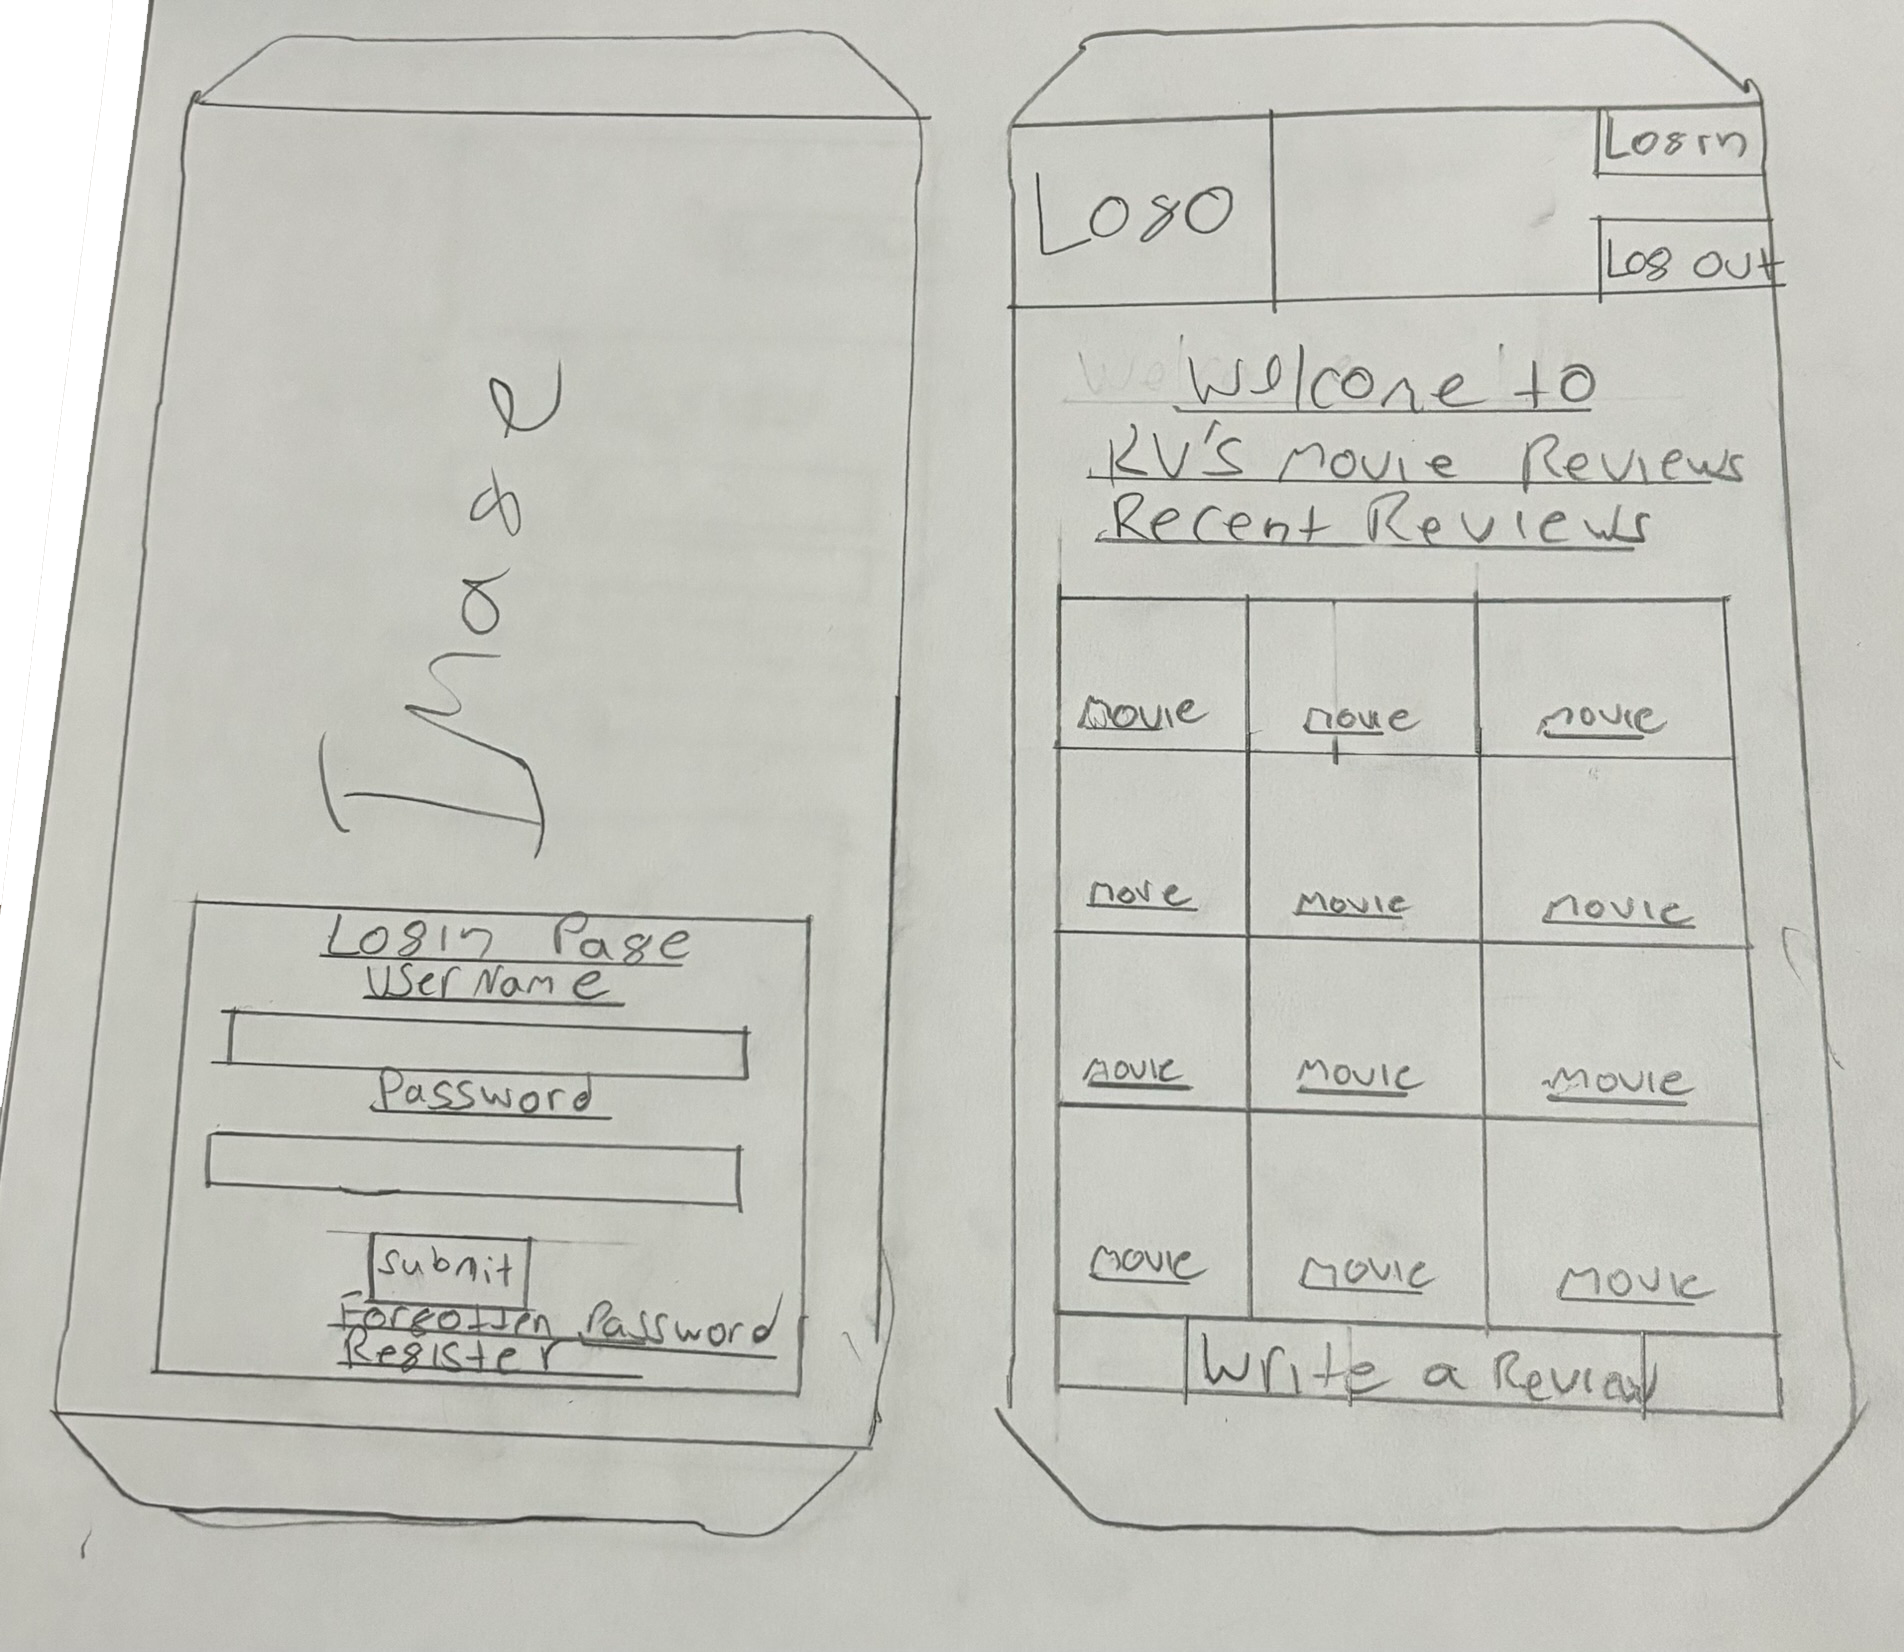 Image
Login Page
UserName
Password
Submit
Forgotten Password
Register
Logo
Login
Log out
Welcome to
KV's Movie Reviews
Recent Reviews
movie movie movie
move movie movie
movie movie movie
movie movie movie
Write a Review